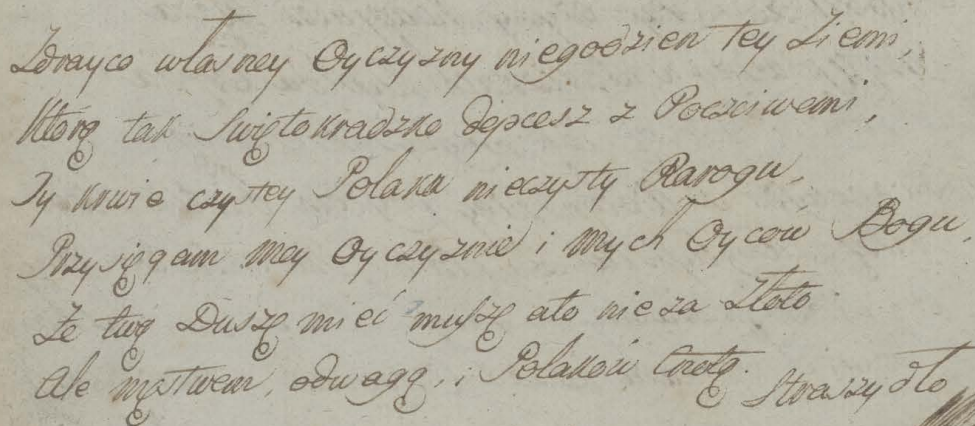 Zdrayco własney Oyczyzny niegodzien tey Ziemi,
Którą tak Swiętokradzko depcesz z Poczciwemi,
Ty krwie czystey Polaka nieczysty Rarogu,
Przysięgam mey Oyczyznie i mych Oyców Bogu,
Że twą Duszę mieć muszę ato nie za Złoto
Ale męstwem, odwagą, i Polaków Cnotą.
Straszydło